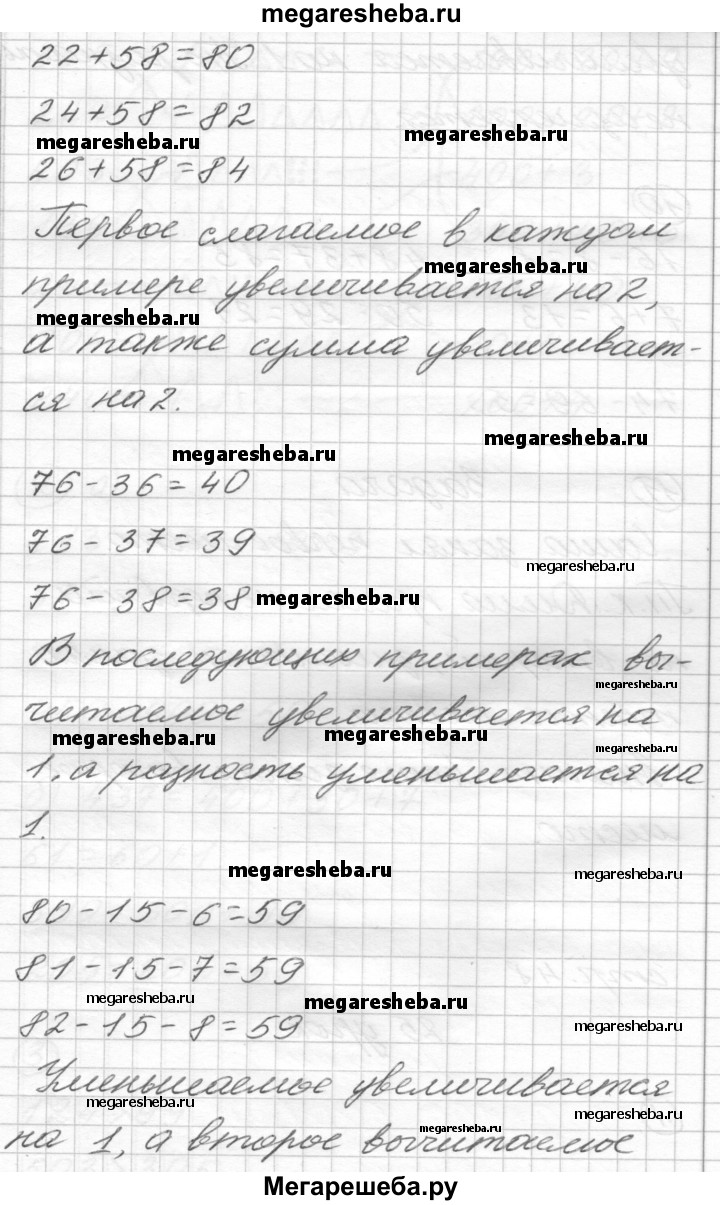 megaresheba.ru
22+58=80
24+58=82
megaresheba.ru
megaresheba.ru
26+58=84
Первое слагаемое в каждом
megaresheba.ru
примере увеличивается на 2,
megaresheba.ru
а также сумма увеличивает-
ся на 2.
megaresheba.ru
megaresheba.ru
76-36=40
76-37=39
megaresheba.ru
76-38=38
megaresheba.ru
В последующих примерах вы-
megaresheba.ru
читаемое увеличивается на
megaresheba.ru
megaresheba.ru
megaresheba.ru
1, а разность уменьшается на
1.
megaresheba.ru
megaresheba.ru
80-15-6=59
81-15-7=59
megaresheba.ru
megaresheba.ru
82-15-8=59
megaresheba.ru
Уменьшаемое увеличивается
megaresheba.ru
megaresheba.ru
megaresheba.ru
на 1, а второе вычитаемое
Мегарешеба.ру